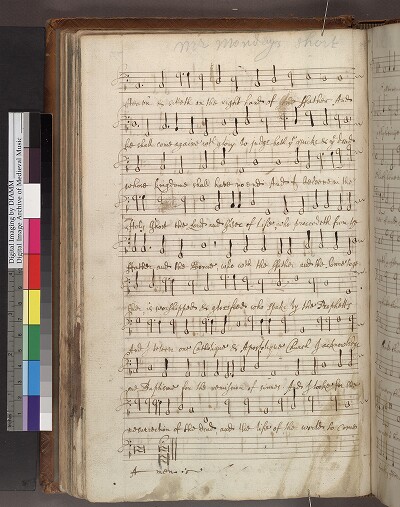 Mr Mondays short
heaven & sitteth on the right hand of the ffather And
he shall come againe with glory to judge both ye quicke & ye dead
whose kingdome shall have no end. And I beleeve in the
Holy Ghost the Lord and giver of life, who proceedeth from the
ffather and the Sonne, who with the ffather and the Sonne
is worshipped & glorified who spake by the Prophetts
And I beleeve one Catholique & Apostolique Church I acknowledge
one Baptisme for the remission of sinnes And I looke for the
resurrection of the dead and the life of the world to come
A men
Digital Imaging by DIAMM
Digital Image Archive of Medieval Music